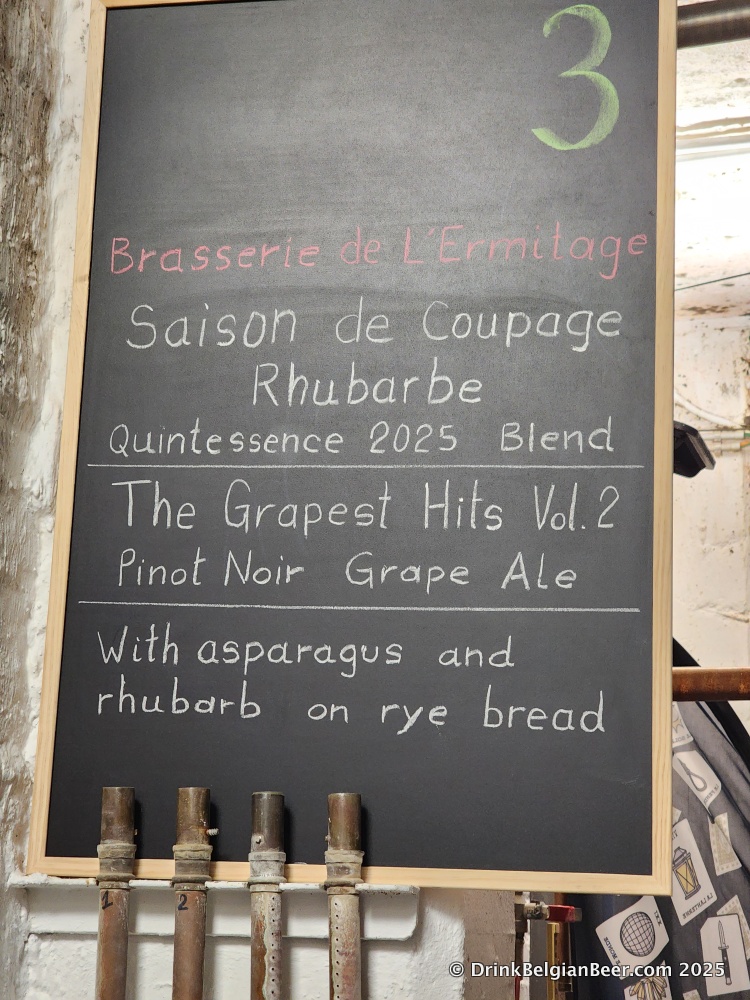 3
Brasserie de L'Ermitage
Saison de Coupage
Rhubarbe
Quintessence 2025 Blend
The Grapest Hits Vol. 2
Pinot Noir Grape Ale
With asparagus and
rhubarb on rye bread
1
2
© DrinkBelgianBeer.com 2025